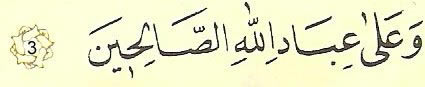 وَعَلىٰ عِبَادِ اللهِ الصَّالِحِينَ 3